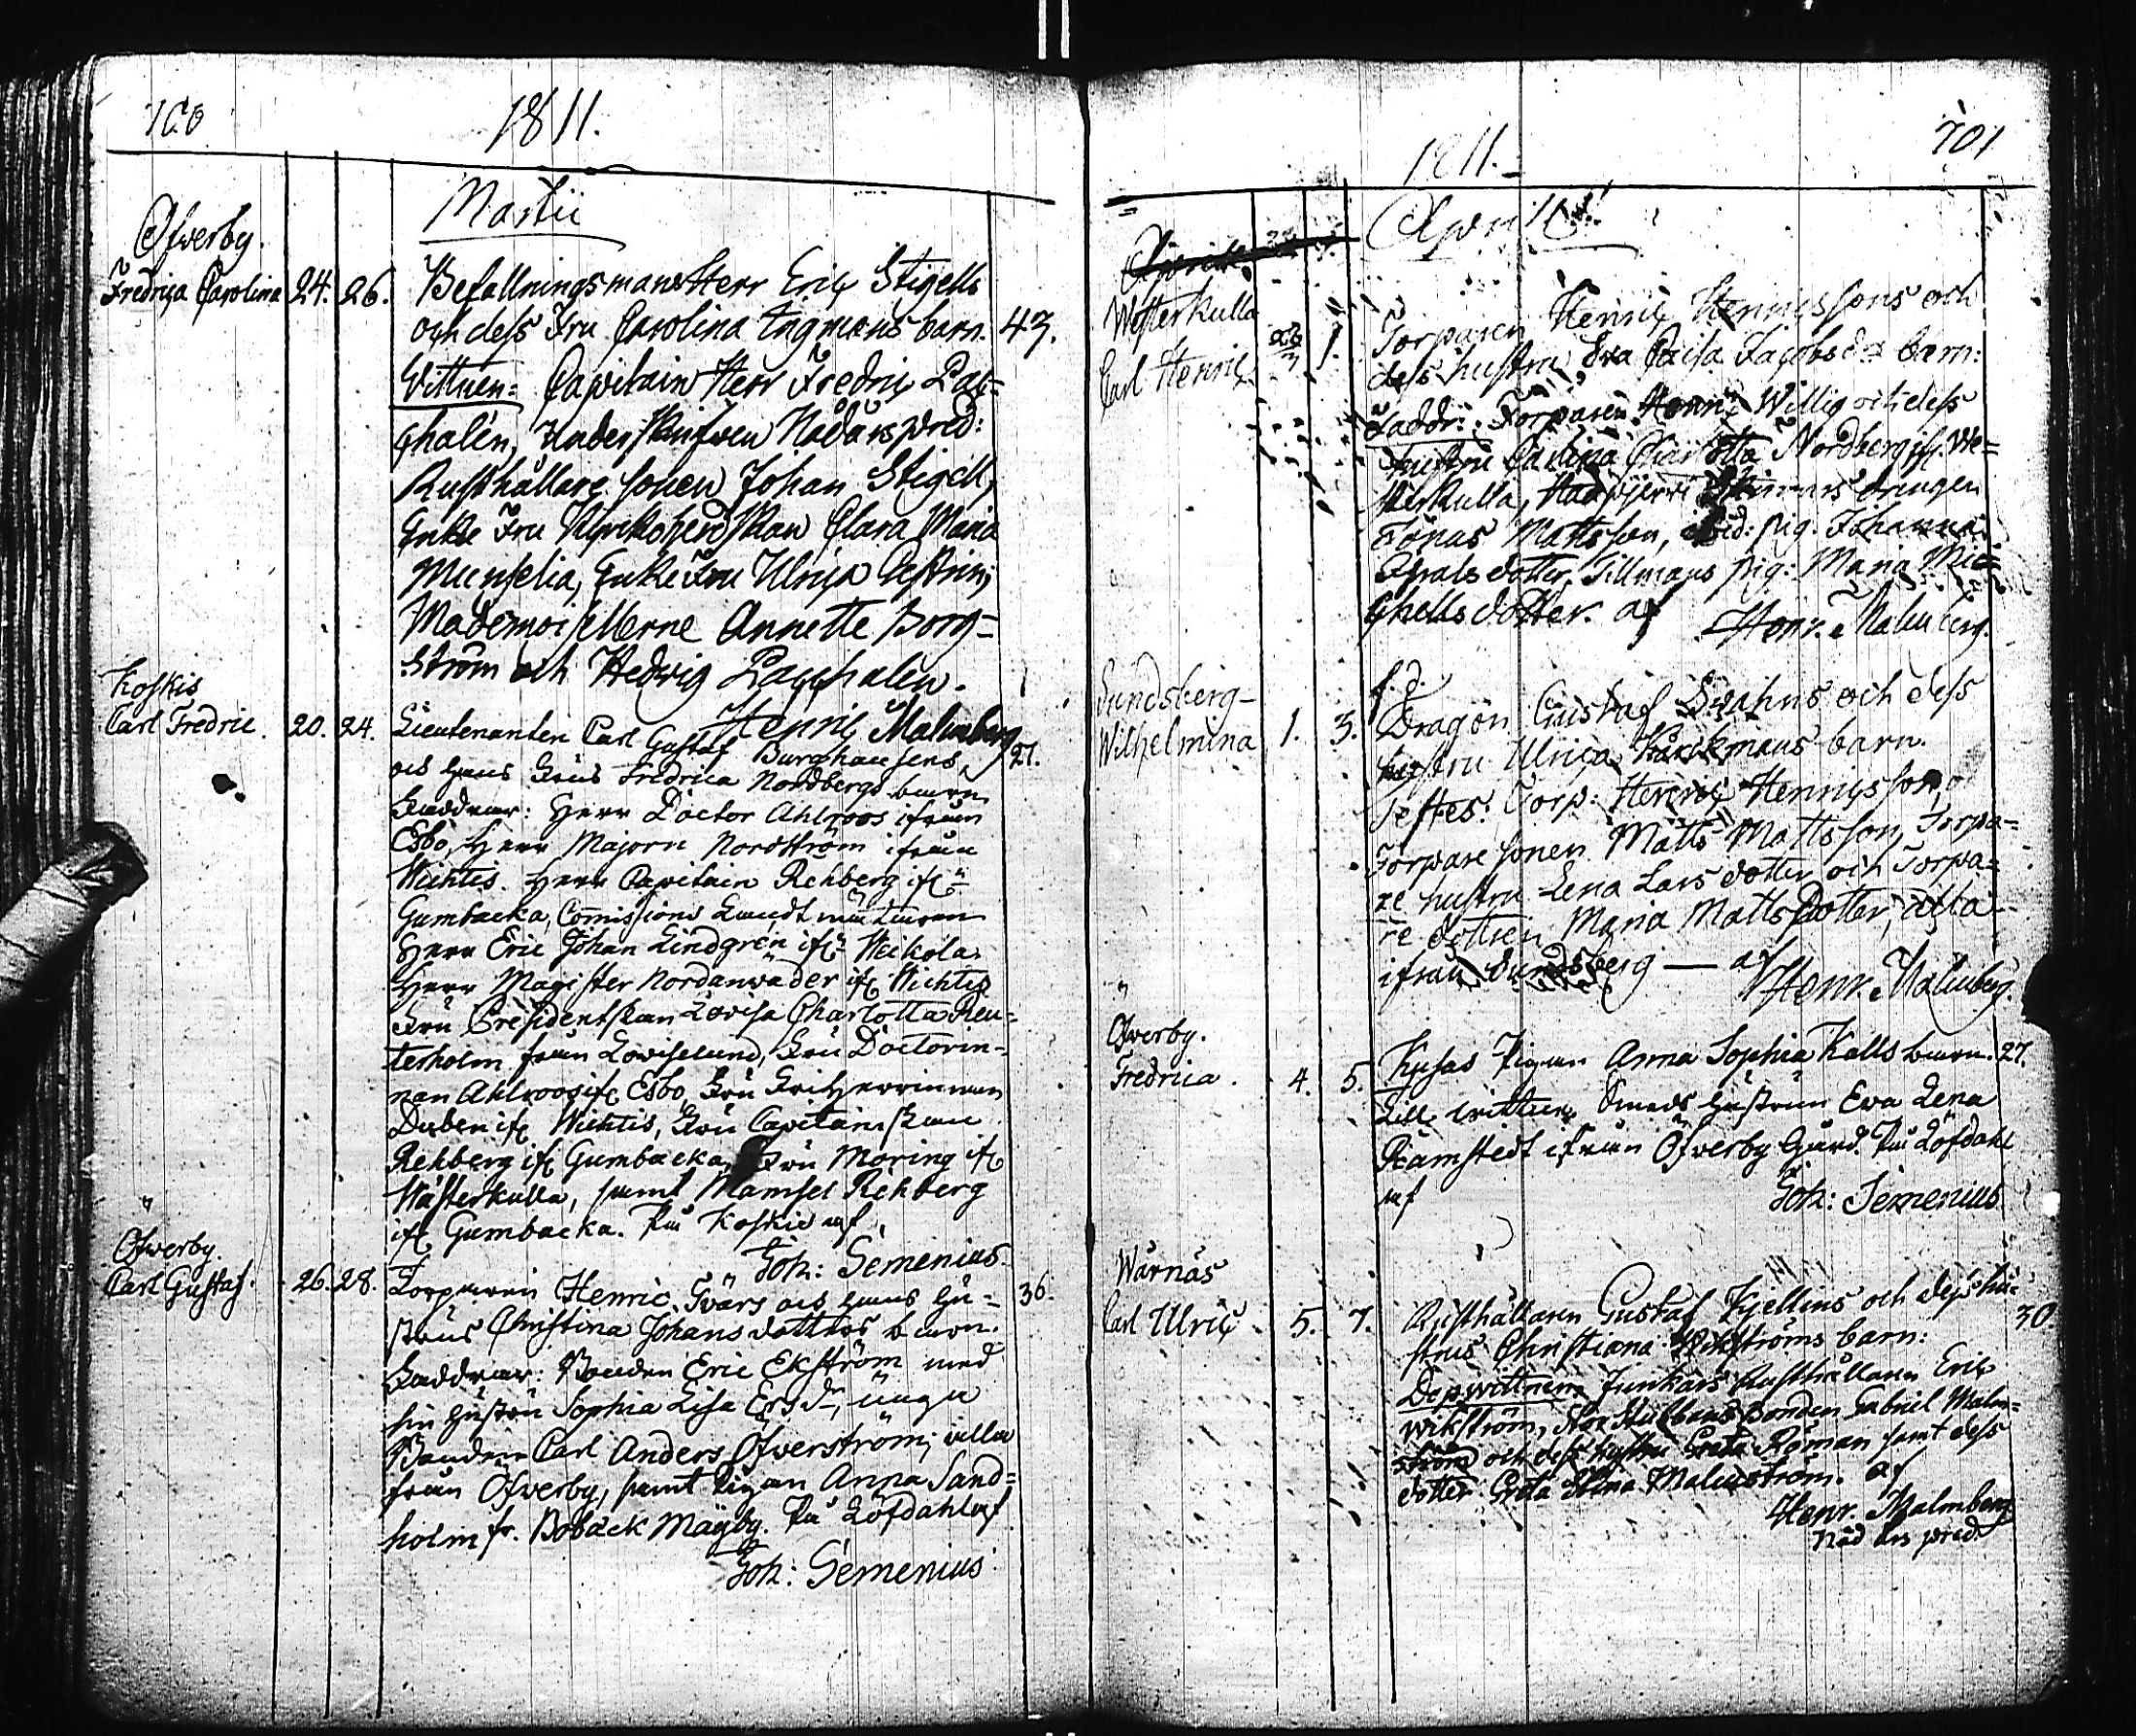 100
1811.
Martii
Ofwerby.
Fredrica Carolina 24. 26. Befallningsmans Herr Eric Stigells
och dess Fru Carolina Ingmans barn. 43.
Vittnen: Capitain Herr Fredric Lag-
ghalén, Nådårspred:
Rusthållare sonen Johan Stigell,
Enke Fru Clara Maria
Munselia, Enke Fru Ulrica
Mademoisellerne Annette Borg-
ström och Hedvig
Henric Malmberg
Koskis
Carl Fredric. 20. 24. Lieutenanten Carl Gustaf Burghausens, 27.
och hans Frus Fredrica Nordbergs barn
Faddrar: Herr Doctor Ahlroos ifrån
Esbo, Herr Majorn Nordström ifrån
Wichtis. Herr Capitain Rehberg ifr
Gumbacka, Commissions Landtmätaren
Herr Eric Johan Lindgrén ifr Weikola
Herr Magister Nordanwäder ifr Wichtis
Fru Presidentskan Lovisa Charlotta Reu-
terholm från Loviselund, Fru Doctorin-
nan Ahlroos ifr Esbo, Fru Friherrinnan
Düben ifr Wichtis, Fru Capitainskan
Rehberg ifr Gumbacka, Fru Moring ifr
Wästerkulla, samt Mamsel Rehberg
ifr Gumbacka. På Koskis af
Joh: Semenius.
Ofwerby.
Carl Gustaf. 26. 28. Torparen Henric Svärs och hans hu- 36.
strus Christina Johansdotters barn.
Faddrar: Bonden Eric Ekström med
sin hustru Sophia Lisa Ersdr, unga
Bonden Carl Anders Ofwerström, alla
från Ofwerby, samt Pigan Anna Sand=
holm fr. Boback På Löfdahl af
Joh: Semenius.
701
1811.
April
Westerkulla
Carl Henric 1. Torparen Henric Henricssons och
dess hustru Eva Caisa Jacobsdr barn:
Faddr: Torparen Henric Willig och dess
hustru Charlotta Nordberg ifr. We=
sterkulla, drengen
Jonas Mattsson, pig. Johanna
dotter, Tillmans pig: Maria Mic=
ghells dotter. af Henr. Malmberg.
Sundsberg-
Wilhelmina 1. 3. Dragon Gustaf Svahns och dess
hustru Ulrica barn.
Testes: Corp: Henric Henricsson,
Torpare sonen Matts Mattsson, Torpa=
re hustru Lena Larsdotter och Torpa=
re dottren Maria Mattsdotter, alla
ifrån Sundsberg — af
Henr. Malmberg.
Ofwerby.
Fredrica. 4. 5. Pigan Anna Sophia Kalls barn. 27.
Till vittne Smeds hustrun Ewa Lena
Ramstedt ifrån Öfwerby Gård. På Löfdahl
af Joh: Semenius
Wärnäs
Carl Ulric 5. 7. Rusthållaren Gustaf Kjellins och dess hu= 30
strus Christiana Wikströms barn:
Dopvittnen Junkars Rusthållaren Eric
Wikström, Bonden Gabriel Malm=
ström och dess hustru Greta Röman samt dess
dotter Greta Malmström. af
Henr. Malmberg
Nåd års pred.